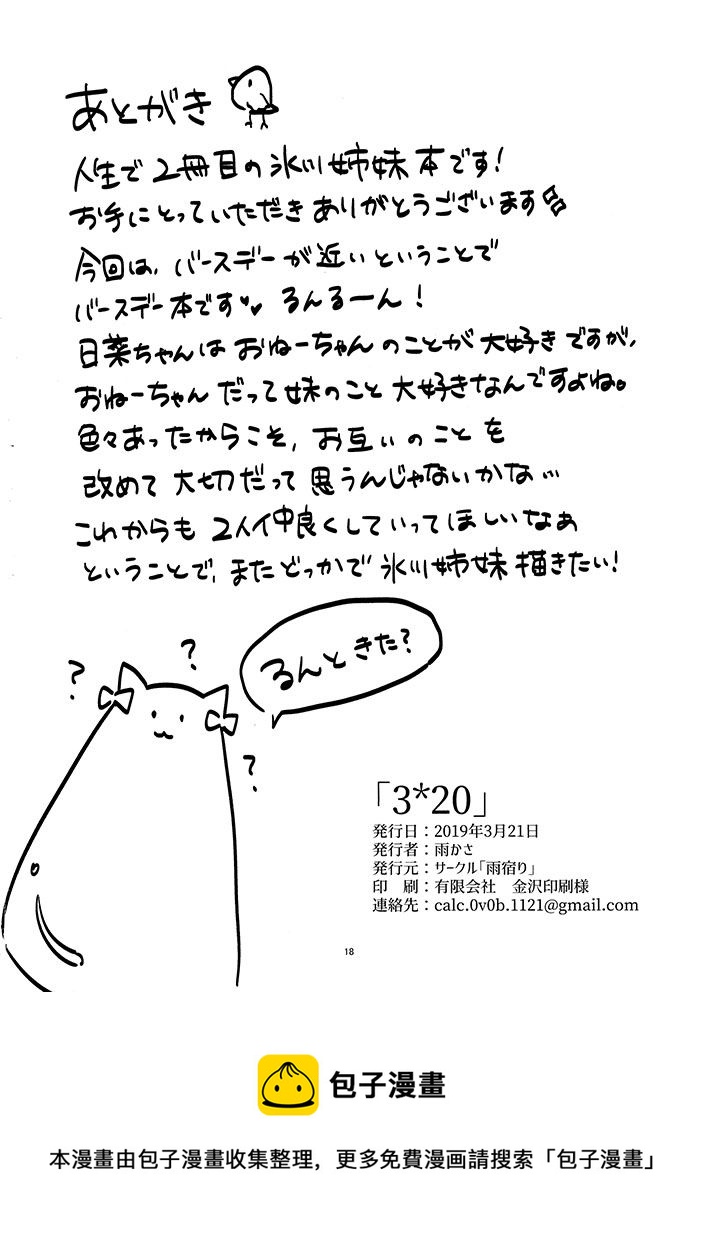 あとがき
人生で2冊目の氷川姉妹本です!
お手にとっていただきありがとうございます
今回は、バースデーが近いということで
バースデー本です♥♥ るんるーん!
日菜ちゃんはおねーちゃんのことが大好きですが、
おねーちゃんだって妹のこと大好きなんですよね。
色々あったからこそ、お互いのことを
改めて大切だって思うんじゃないかな…
これからも2人仲良くしていってほしいなぁ
ということで、またどっかで氷川姉妹描きたい!
るんときた?
?
?
?
「3*20」
発行日:2019年3月21日
発行者:雨かさ
発行元:サークル「雨宿り」
印 刷:有限会社 金沢印刷様
連絡先:calc.0v0b.1121@gmail.com
18
包子漫畫
本漫畫由包子漫畫收集整理,更多免費漫画請搜索「包子漫畫」